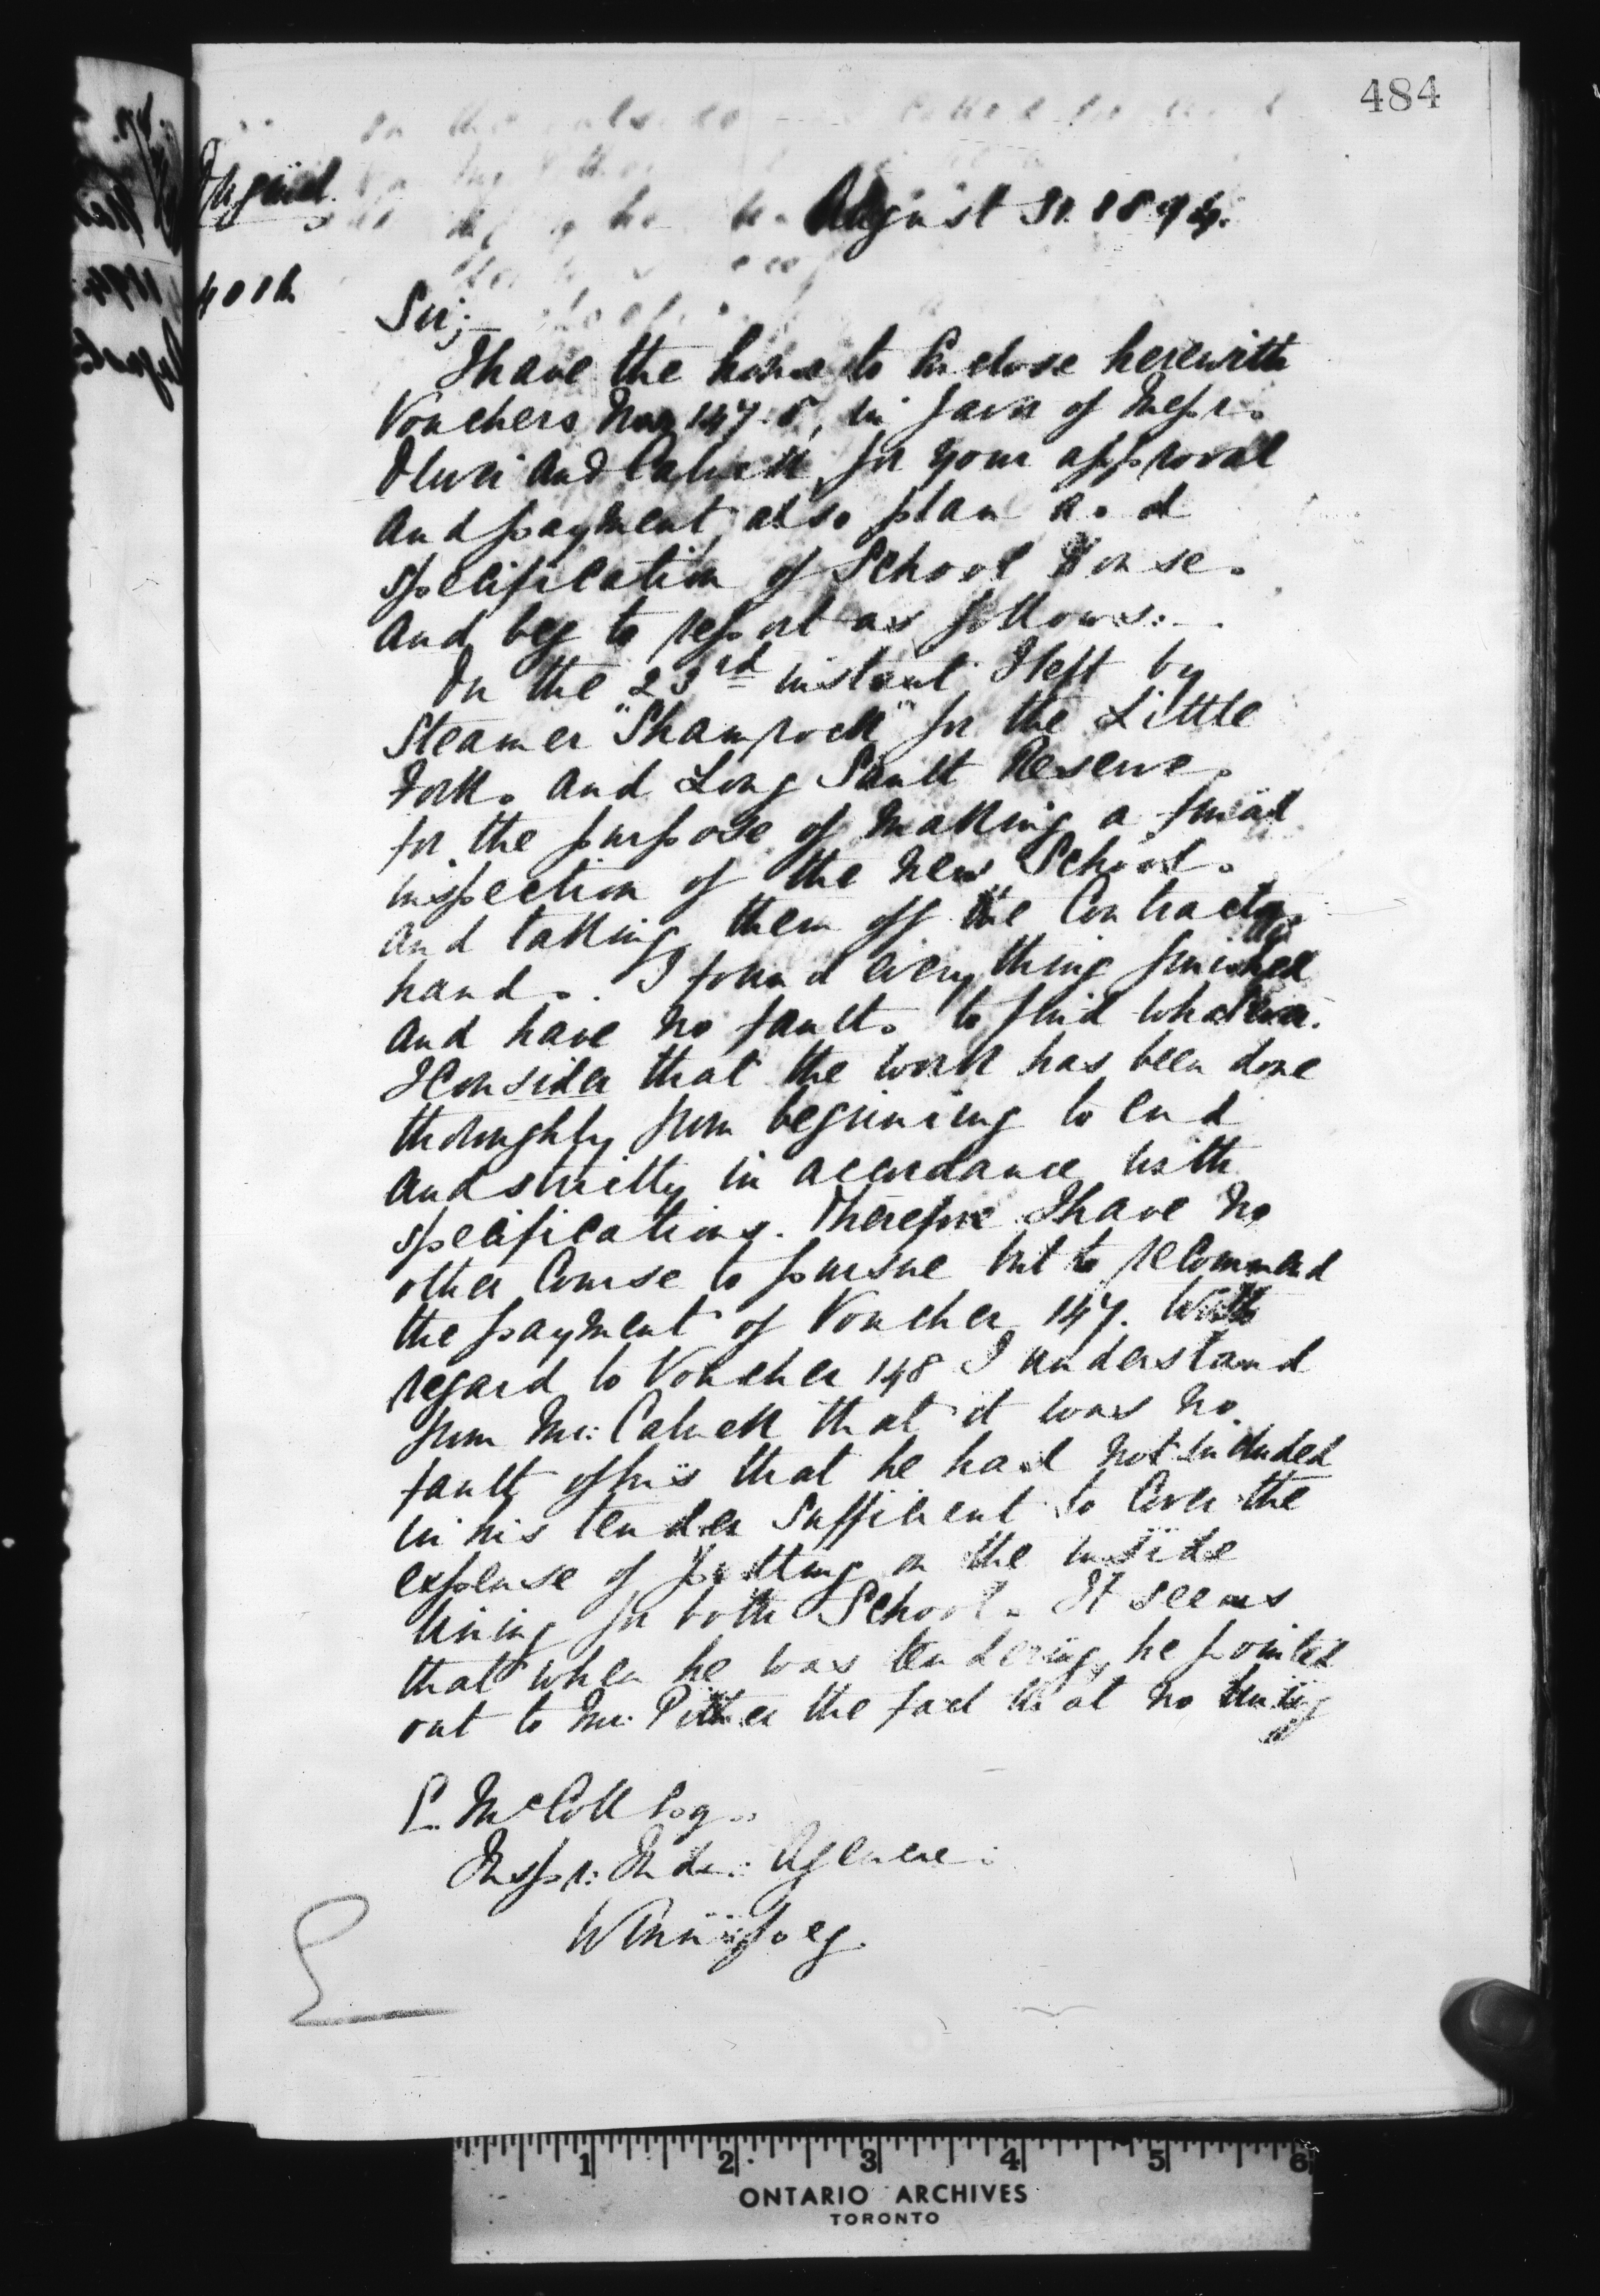 484
August 31. 1894.
Sir;
I have the honor to Enclose herewith
Vouchers Nos 147.8, in favor of Messrs.
and for your approval
and payment, also plan and
specification of School House.
And beg to report as follows:-
On the 23rd instant I left by
Steamer "Shamrock" for the Little
Forks and Long Sault Reserve.
for the purpose of making a final
inspection of the New Schools.
and taking them off the Contractors
hands. I found everything finished
and have no faults to find whatever.
I Consider that the work has been done
thoroughly from beginning to end
and strictly in accordance with
specifications. Therefore I have no
other Course to pursue but to recommend
the payment of Voucher 147. With
regard to Voucher 148 I understand
from Mr: that it was no
fault of his that he had not included
in his tender Sufficient to Cover the
expense of putting on the inside
lining for both Schools. It seems
that when he was tendering, he pointed
out to Mr: the fact that no lining
E. McColl Esq.
Inspr: Indn: Agencies.
Winnipeg.
1 2 3 4 5 6
ONTARIO ARCHIVES
TORONTO